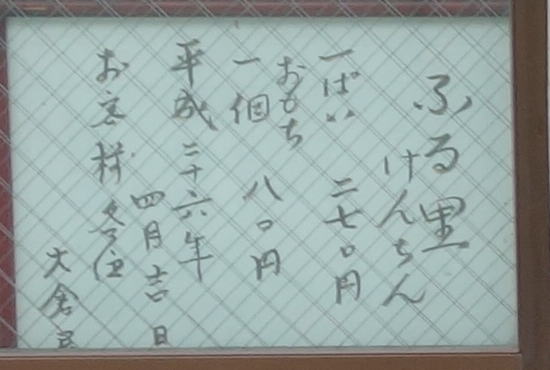 ふる里
けんちん
一ぱい 二七〇円
おもち
一個 八〇円
平成二十六年
四月吉日
お客様各位
大倉